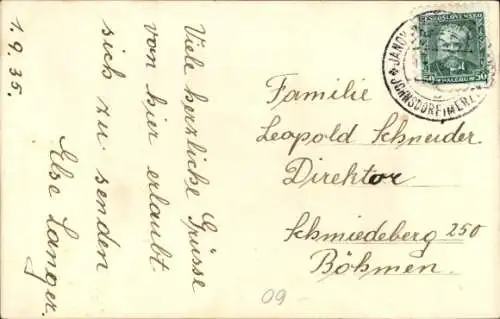 1.9.35.
Viele herzliche Grüsse
von hier erlaubt
sich zu senden
Else Langer.
ČESKOSLOVENSKO
50 HALÉŘŮ 50
JOHNSDORF
Familie
Leopold Schneider
Direktor
Schmiedeberg 250
Böhmen.
09